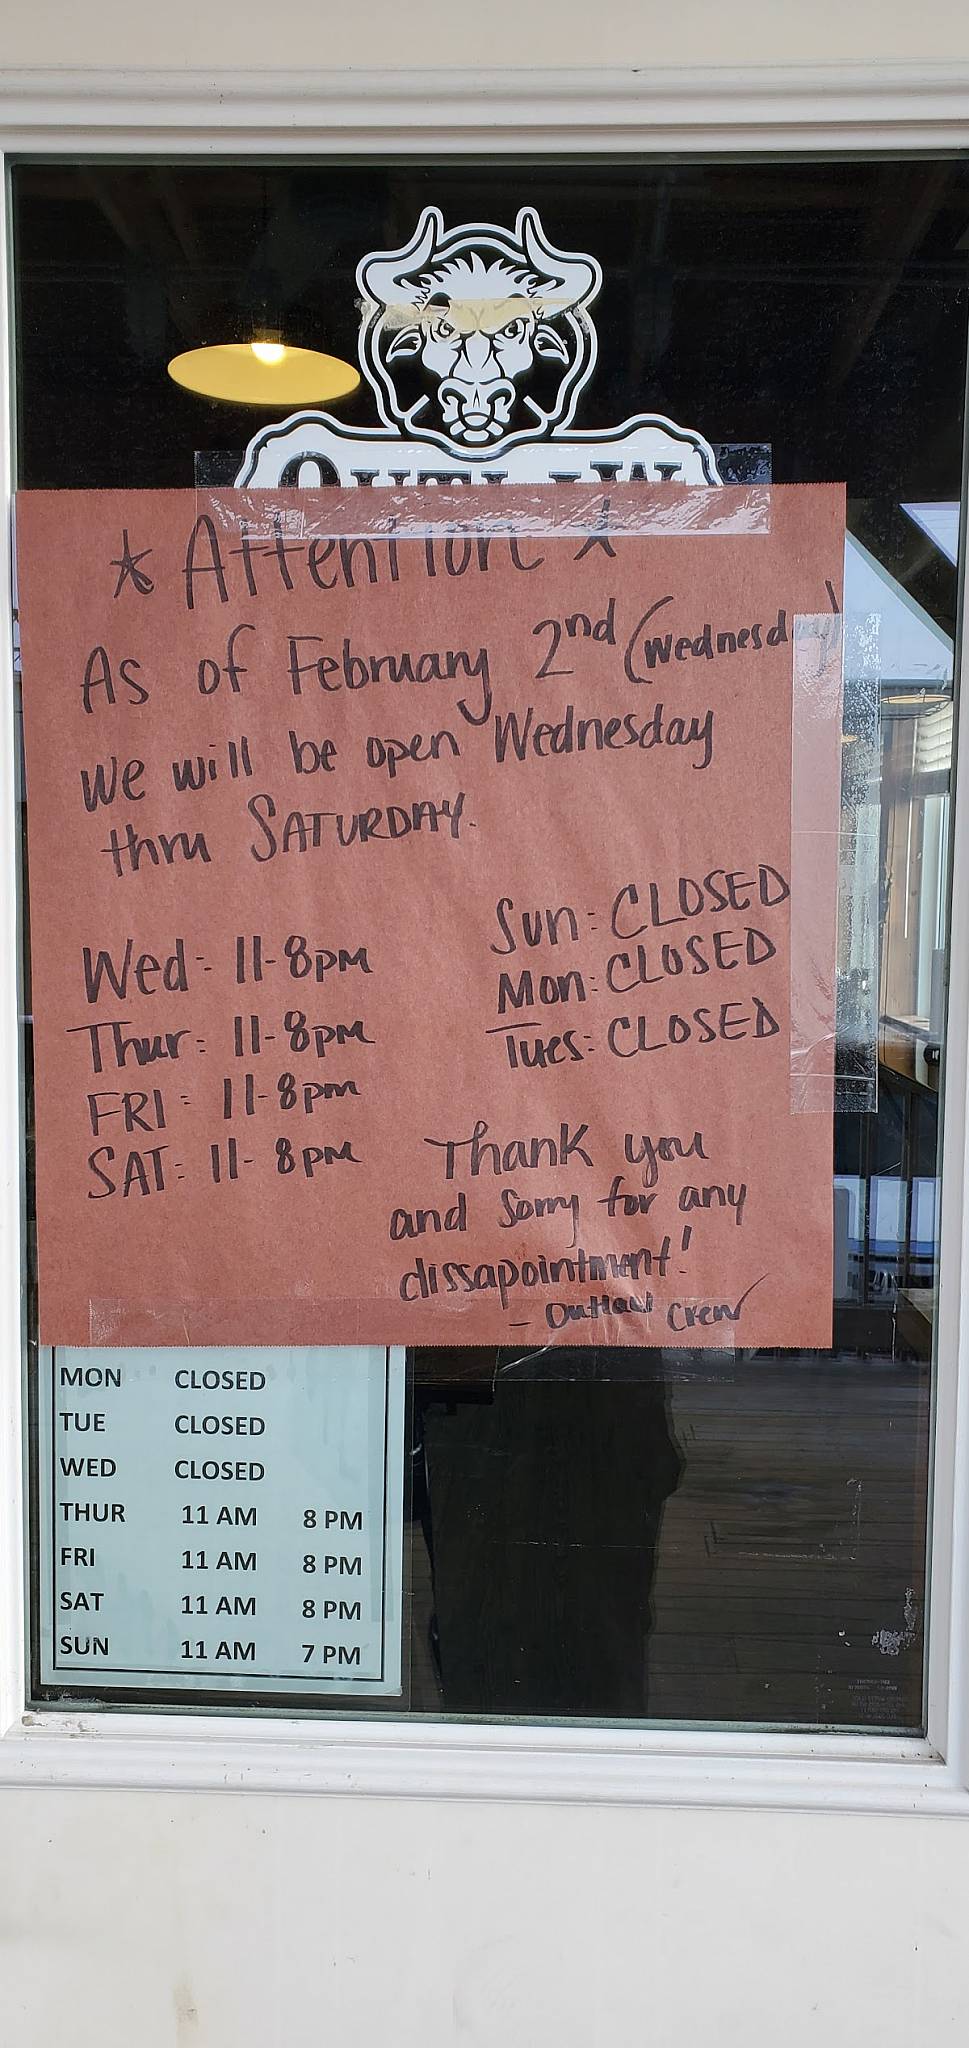 OUTLAW
* Attention *
As of February 2nd (Wednesday)
We will be open Wednesday
thru SATURDAY.
Sun: CLOSED
Mon: CLOSED
Tues: CLOSED
Wed: 11-8pm
Thur: 11-8pm
FRI: 11-8pm
SAT: 11-8pm
Thank you
and Sorry for any
dissapointment!
- Outlaw Crew
MON CLOSED
TUE CLOSED
WED CLOSED
THUR 11 AM 8 PM
FRI 11 AM 8 PM
SAT 11 AM 8 PM
SUN 11 AM 7 PM